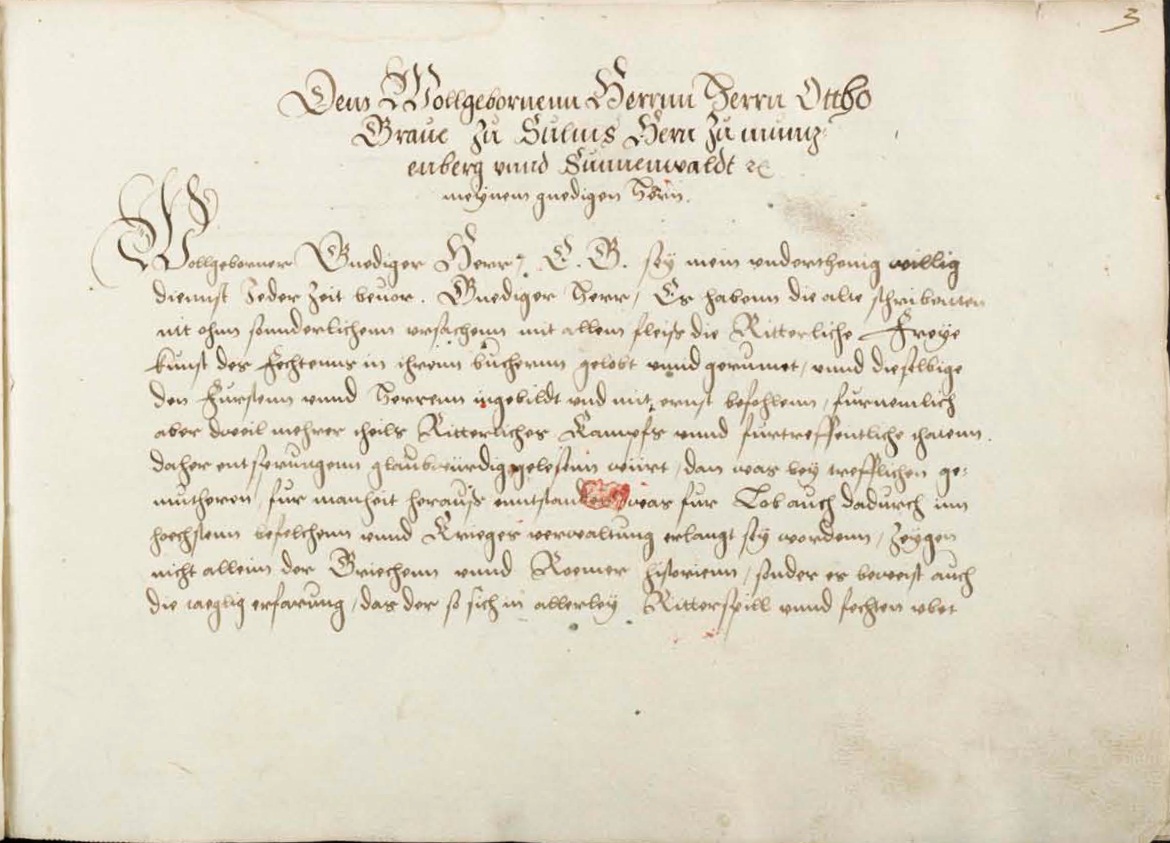 3
Dem Wollgebornenn Herrnn Herrn Ottho
Graue zu Sulms Herr zu muntz
enberg vnnd Sunnenwaldt ꝛc
meynem gnedigen Hern.
Wollgeborner Gnediger Herr, E. G. sey mein vnderthenig willig
diennst Jeder Zeit beuor. Gnediger Herr, Es habenn die alte schribenten
nit ohnn sonderlichenn vrsachenn mit allem fleiss die Ritterliche Freye
kunst des Fechtenns in ihrenn büchernn gelobt vnnd gerumet, vnnd dieselbige
den Fürstenn vnnd Herrenn ingebildt vnd mit ernst befohlenn, furnemlich
aber dweil mehrer theils Ritterliches Kampfs vnnd furtreffentliche thatenn
daher entsprungenn glaubwürdig gelesenn würt, dan was bey trefflichen ge-
mutheren, fur manheit herauss enntstanden, was fur Lob auch dadurch im
hochstenn befelchenn vnnd Krieges verwaltung erlangt sey wordenn, Zeygen
nicht allein der Griechenn vnnd Roemer historienn, sonder es beweist auch
die taeglig erfarung, das der so sich in allerley Ritterspill vnnd fechten vbet